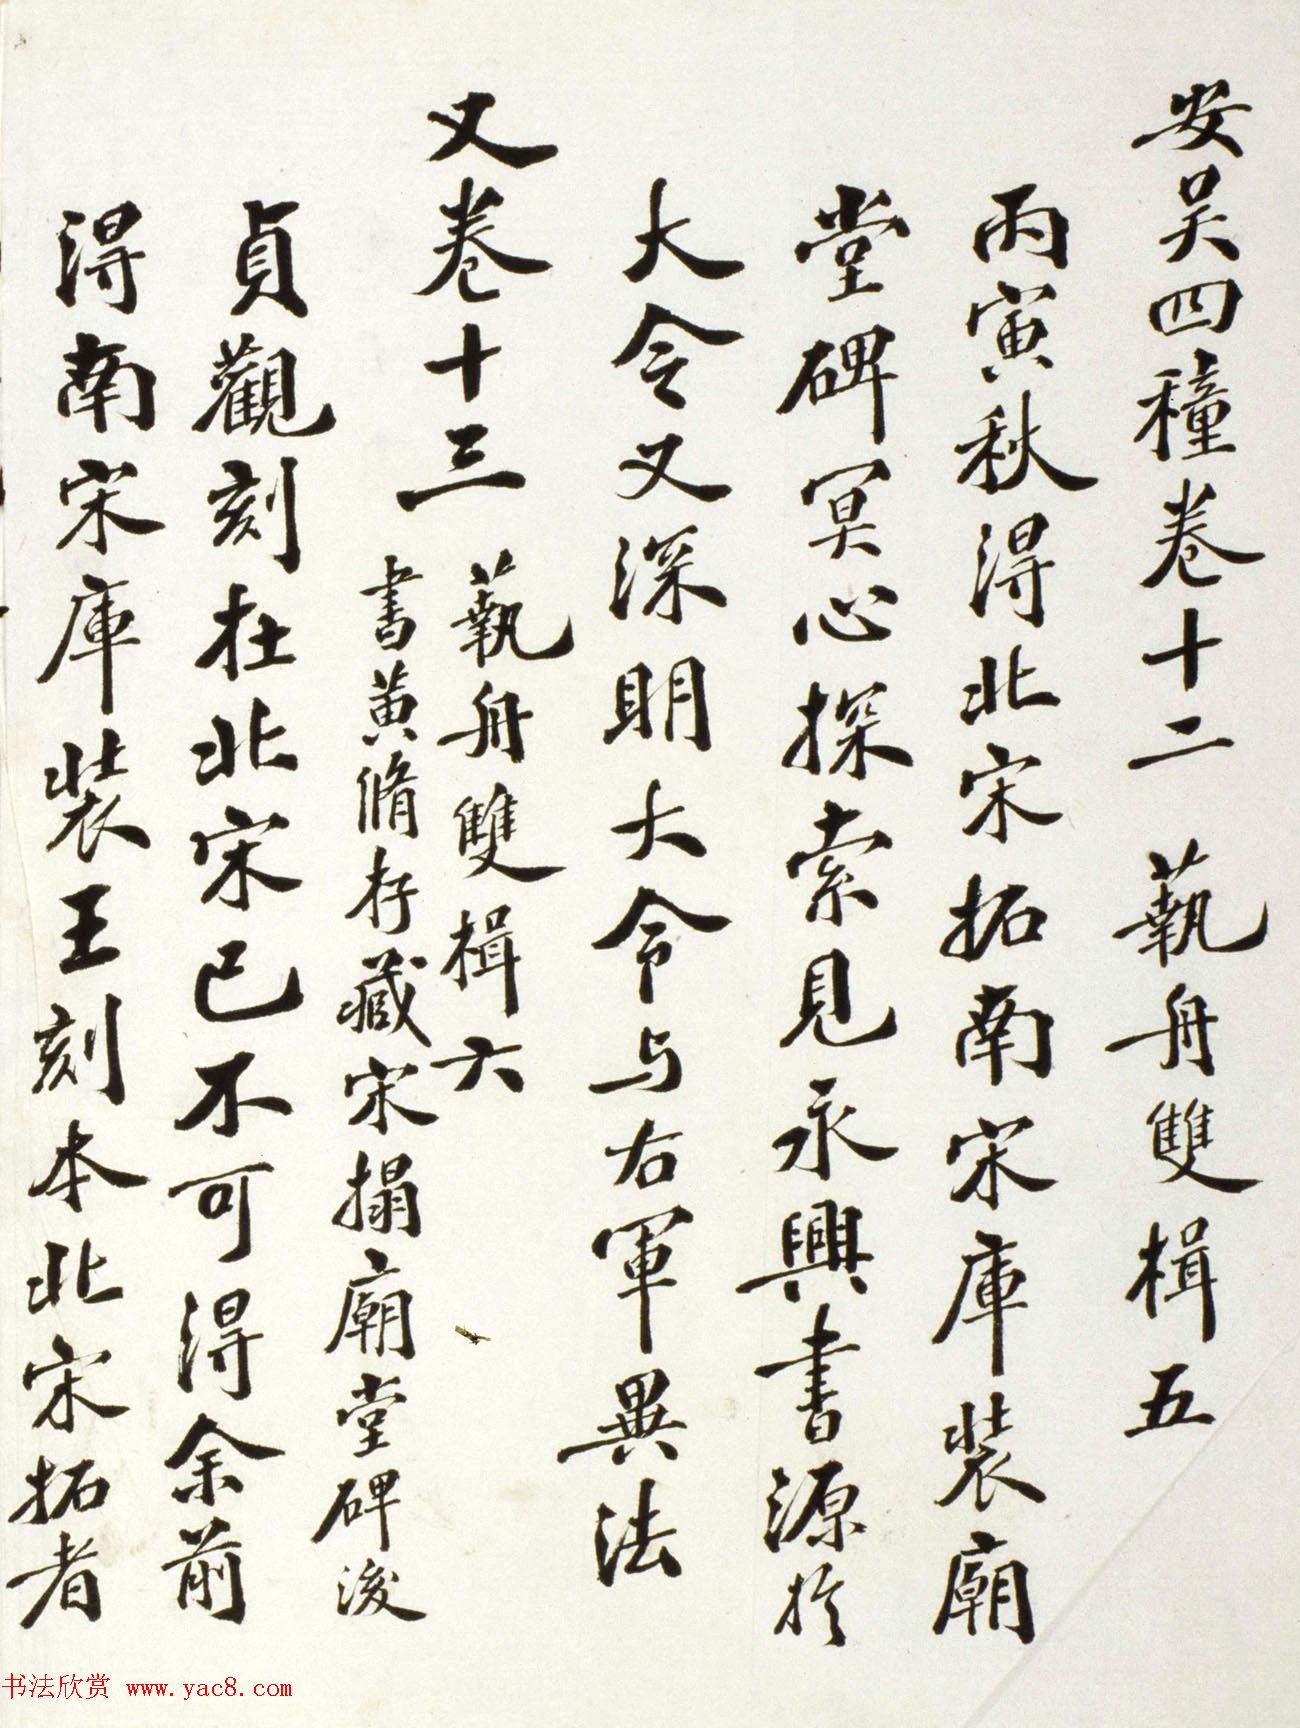 安吴四種卷十二 藝舟雙楫五
丙寅秋得北宋拓南宋庫裝廟
堂碑冥心探索見永興書源於
大令又深明大令与右軍異法
又卷十三 藝舟雙楫六
書黄脩存藏宋搨廟堂碑後
貞觀刻在北宋已不可得余前
得南宋庫裝王刻本北宋拓者
书法欣赏 www.yac8.com